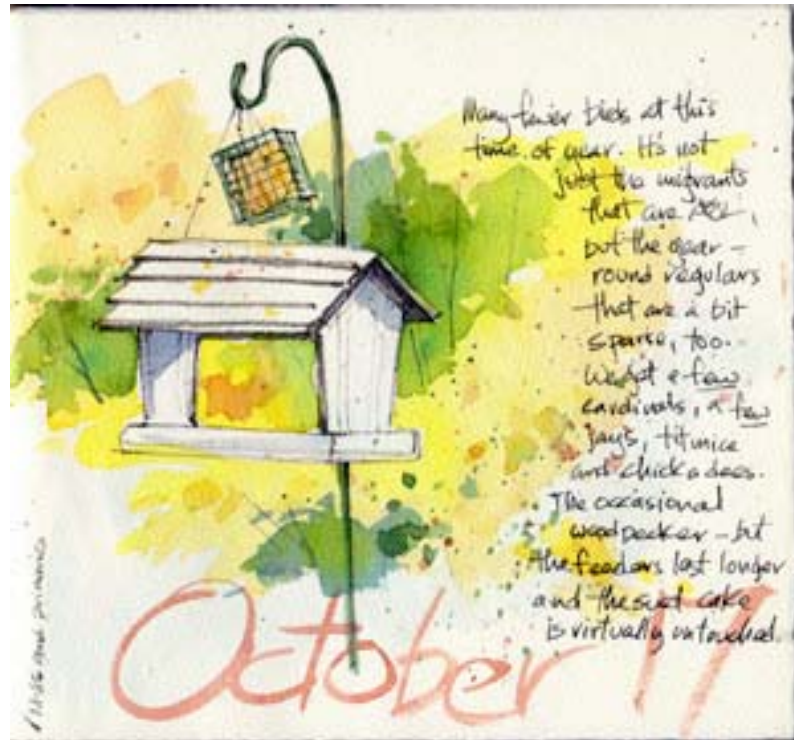 Many fewer birds at this
time of year. It's not
just the migrants
that are
but the year-
round regulars
that are a bit
sparse, too.
We get a few
cardinals, a few
jays, titmice
and chickadees.
The occasional
woodpecker - but
the feeders last longer
and the suet cake
is virtually untouched.
October 17